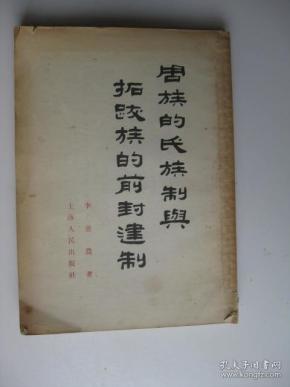 周族的氏族制與
拓跋族的前封建制
李亞農著
上海人民出版社
孔夫子旧书网